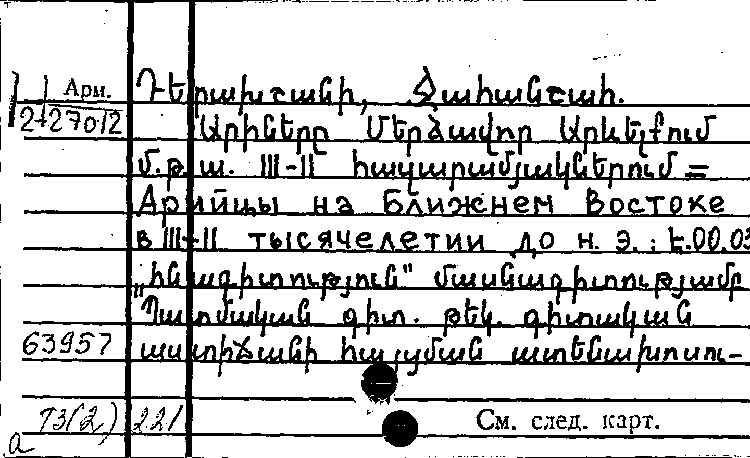 Арм. Դերախշանի, Ջահանշահ.
2-27012 Արիները Մերձավոր Արևելքում
մ.թ.ա. III-II հազարամյակներում =
Арийцы на Ближнем Востоке
в III-II тысячелетии до н. э. : Է.00.03
„Հնագիտություն" մասնագիտությամբ
Պատմական գիտ. թեկ. գիտական
63957 աստիճանի հայցման ատենախոսու-
73(2) 221 См. след. карт.
а